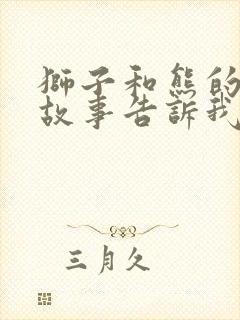 獅子和熊的
故事告訴我
三月久